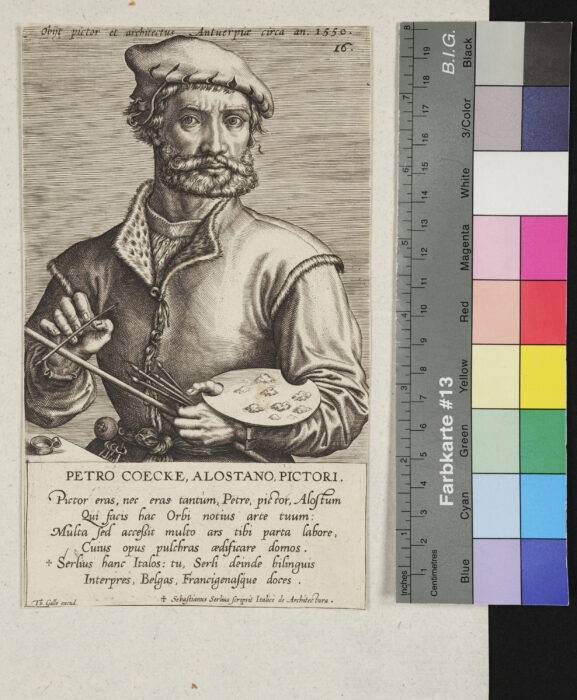 Obijt pictor et architectus Antuerpiæ circa an. 1550.
16.
PETRO COECKE, ALOSTANO, PICTORI.
Pictor eras, nec eras tantùm, Petre, pictor, Alostum
Qui facis hac Orbi notius arte tuum:
Multa sed accessit multo ars tibi parta labore,
Cuius opus pulchras ædificare domos.
+ Serlius hanc Italos: tu, Serli deinde bilinguis
Interpres, Belgas, Francigenasque doces.
Th. Galle excud.
+ Sebastianus Serlius scripsit Italicè de Architectura.
Inches
1
2
3
4
5
6
7
8
Centimetres
1
2
3
4
5
6
7
8
9
10
11
12
13
14
15
16
17
18
19
Farbkarte #13
B.I.G.
Blue
Cyan
Green
Yellow
Red
Magenta
White
3/Color
Black